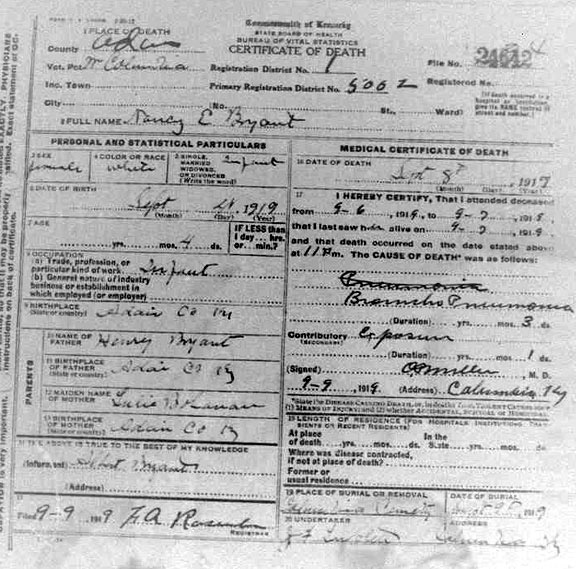 Commonwealth of Kentucky
STATE BOARD OF HEALTH
BUREAU OF VITAL STATISTICS
CERTIFICATE OF DEATH
1 PLACE OF DEATH
County Adair
Vot. Pct. W Columbia
Registration District No.
File No. 24612
Inc. Town
Primary Registration District No. 5002
Registered No.
City
(No.
St.,
Ward)
2 FULL NAME Nancy E Bryant
PERSONAL AND STATISTICAL PARTICULARS
3 SEX
female
4 COLOR OR RACE
white
5 SINGLE,
MARRIED
WIDOWED,
OR DIVORCED
(Write the word)
Infant
6 DATE OF BIRTH
Sept 1919
(Month) (Day) (Year)
7 AGE
yrs. mos. 4 ds.
IF LESS than
1 day ... hrs.
or ... min.?
8 OCCUPATION
(a) Trade, profession, or
particular kind of work. Infant
(b) General nature of industry
business or establishment in
which employed (or employer)
9 BIRTHPLACE
(State or country) Adair Co Ky
PARENTS
10 NAME OF
FATHER Henry Bryant
11 BIRTHPLACE
OF FATHER
(State or country) Adair Co Ky
12 MAIDEN NAME
OF MOTHER
13 BIRTHPLACE
OF MOTHER
(State or country) Adair Co Ky
14 THE ABOVE IS TRUE TO THE BEST OF MY KNOWLEDGE
(Informant) Bryant
(Address)
15
Filed 9-9 1919 F.A. Rosenbaum
REGISTRAR
MEDICAL CERTIFICATE OF DEATH
16 DATE OF DEATH
Sept 8th, 1919
(Month) (Day) (Year)
17 I HEREBY CERTIFY, That I attended deceased
from 9-6, 1919, to 9-7, 1919,
that I last saw her alive on 9-7, 1919,
and that death occurred on the date stated above
at 11 P m. The CAUSE OF DEATH* was as follows:
Pneumonia
Broncho Pneumonia
(Duration) yrs. mos. 3 ds.
Contributory Exposure
(SECONDARY)
(Duration) yrs. mos. 1 ds.
(Signed) Miller, M. D.
9-9, 1919 (Address) Columbia Ky
*State the DISEASE CAUSING DEATH, or, in deaths from VIOLENT CAUSES, state
(1) MEANS OF INJURY; and (2) whether ACCIDENTAL, SUICIDAL or HOMICIDAL
18 LENGTH OF RESIDENCE (FOR HOSPITALS, INSTITUTIONS, TRANSIENTS OR RECENT RESIDENTS)
At place
of death yrs. mos. ds.
In the
State yrs. mos. ds.
Where was disease contracted,
if not at place of death?
Former or
usual residence
19 PLACE OF BURIAL OR REMOVAL
DATE OF BURIAL
Sept 9, 1919
20 UNDERTAKER
ADDRESS
Columbia Ky